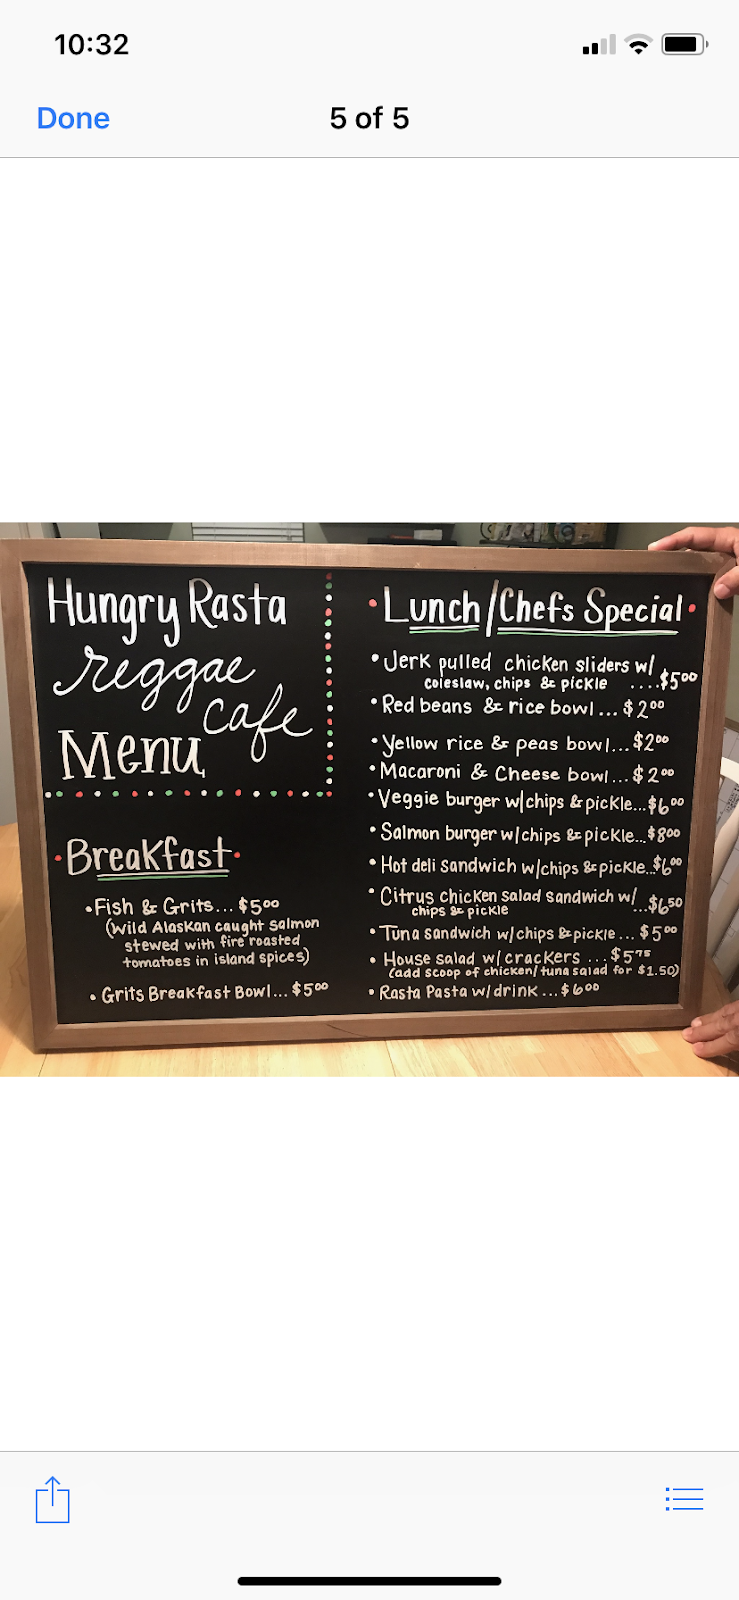 10:32
Done
5 of 5
Hungry Rasta
reggae
cafe
Menu
• Breakfast •
• Fish & Grits... $5⁰⁰
(Wild Alaskan caught salmon
stewed with fire roasted
tomatoes in island spices)
• Grits Breakfast Bowl... $5⁰⁰
• Lunch/Chefs Special •
• Jerk pulled chicken sliders w/
coleslaw, chips & pickle ....$5⁰⁰
• Red beans & rice bowl... $2⁰⁰
• Yellow rice & peas bowl... $2⁰⁰
• Macaroni & Cheese bowl... $2⁰⁰
• Veggie burger w/chips & pickle...$6⁰⁰
• Salmon burger w/chips & pickle... $8⁰⁰
• Hot deli sandwich w/chips & pickle..$6⁰⁰
• Citrus chicken salad sandwich w/
chips & pickle ...$6⁵⁰
• Tuna sandwich w/chips & pickle... $5⁰⁰
• House salad w/ crackers ... $5⁷⁵
(add scoop of chicken/tuna salad for $1.50)
• Rasta Pasta w/ drink... $6⁰⁰